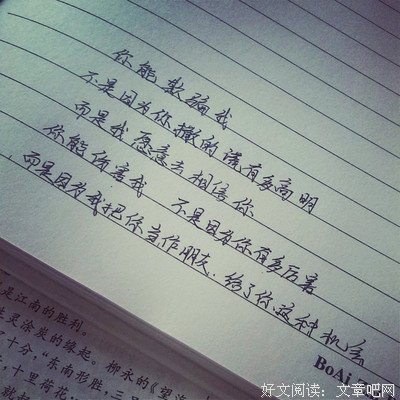 你能欺骗我
不是因为你撒的谎有多高明
而是我愿意去相信你
你能伤害我 不是因为你有多厉害
而是因为我把你当作朋友.给了你这种机会
BoAi
是江南的胜利。
生灵涂炭的缘起。柳永的《望海
十分,“东南形胜,三
,十里荷花。
好文阅读:文章吧网